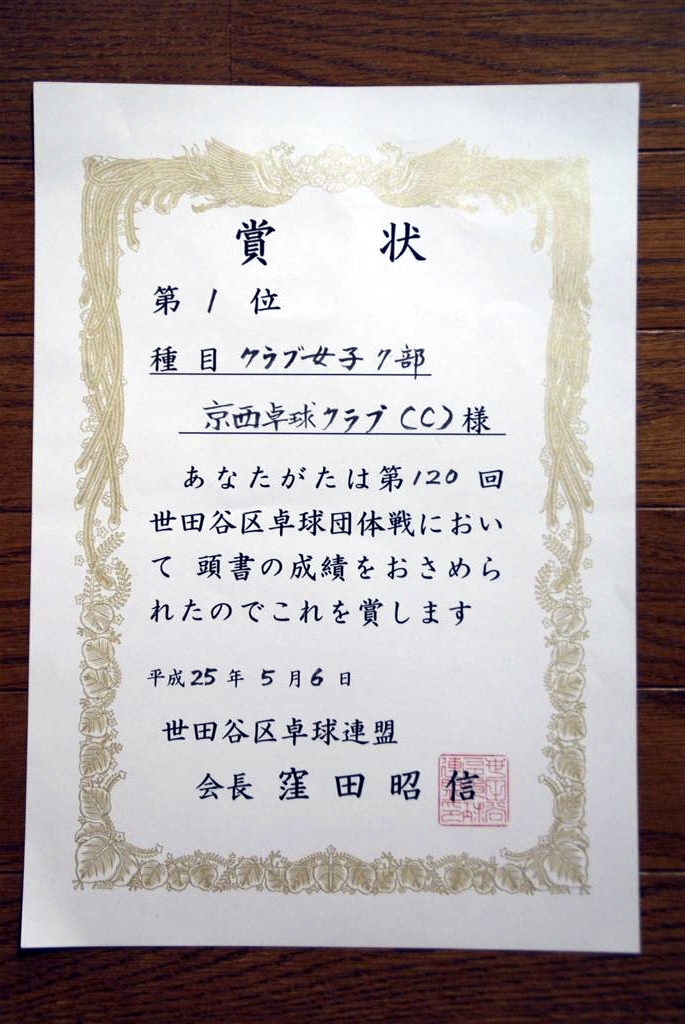 賞状
第1位
種目 クラブ女子7部
京西卓球クラブ(C)様
あなたがたは第120回
世田谷区卓球団体戦におい
て 頭書の成績をおさめら
れたのでこれを賞します
平成25年5月6日
世田谷区卓球連盟
会長 窪田昭信